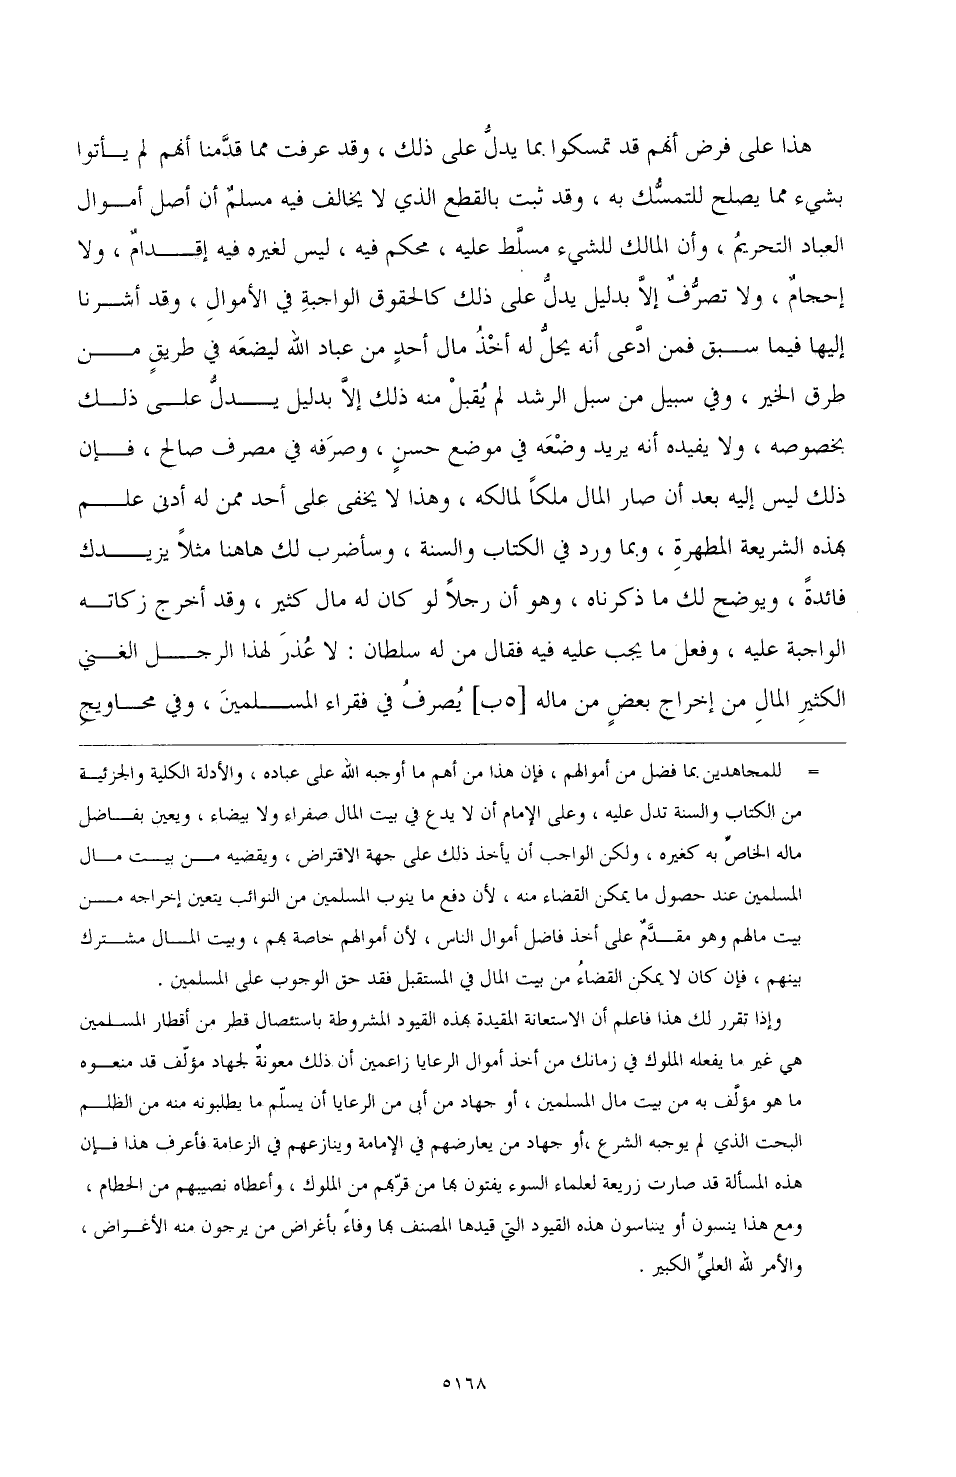 هذا على فرض أنهم قد تمسكوا بما يدلُّ على ذلك ، وقد عرفت مما قدَّمنا أنهم لم يأتوا
بشيء مما يصلح للتمسُّك به ، وقد ثبت بالقطع الذي لا يخالف فيه مسلمٌ أن أصل أموال
العباد التحريمُ ، وأن المالك للشيء مسلَّط عليه ، محكم فيه ، ليس لغيره فيه إقدامٌ ، ولا
إحجامٌ ، ولا تصرُّفٌ إلاَّ بدليل يدلُّ على ذلك كالحقوق الواجبةِ في الأموالِ ، وقد أشرنا
إليها فيما سبق فمن ادَّعى أنه يحلُّ له أخْذُ مال أحدٍ من عباد الله ليضعَه في طريقٍ من
طرق الخير ، وفي سبيل من سبل الرشد لم يُقبلْ منه ذلك إلاَّ بدليل يدلُّ على ذلك
بخصوصه ، ولا يفيده أنه يريد وضْعَه في موضع حسنٍ ، وصرَفه في مصرف صالح ، فإن
ذلك ليس إليه بعد أن صار المال ملكاً لمالكه ، وهذا لا يخفى على أحد ممن له أدنى علم
بهذه الشريعة المطهرةِ ، وبما ورد في الكتاب والسنة ، وسأضرب لك هاهنا مثلاً يزيدك
فائدةً ، ويوضح لك ما ذكرناه ، وهو أن رجلاً لو كان له مال كثير ، وقد أخرج زكاته
الواجبة عليه ، وفعل ما يجب عليه فيه فقال من له سلطان : لا عُذرَ لهذا الرجل الغني
الكثيرِ المالِ من إخراج بعضٍ من ماله [٥ب] يُصرفُ في فقراء المسلمينَ ، وفي محاويجِ
= للمجاهدين بما فضل من أموالهم ، فإن هذا من أهم ما أوجبه الله على عباده ، والأدلة الكلية والجزئية
من الكتاب والسنة تدل عليه ، وعلى الإمام أن لا يدع في بيت المال صفراء ولا بيضاء ، ويعين بفاضل
ماله الخاصّ به كغيره ، ولكن الواجب أن يأخذ ذلك على جهة الاقتراض ، ويقضيه من بيت مال
المسلمين عند حصول ما يمكن القضاء منه ، لأن دفع ما ينوب المسلمين من النوائب يتعين إخراجه من
بيت مالهم وهو مقدَّمٌ على أخذ فاضل أموال الناس ، لأن أموالهم خاصة بهم ، وبيت المال مشترك
بينهم ، فإن كان لا يمكن القضاءُ من بيت المال في المستقبل فقد حق الوجوب على المسلمين .
وإذا تقرر لك هذا فاعلم أن الاستعانة المقيدة بهذه القيود المشروطة باستئصال قطر من أقطار المسلمين
هي غير ما يفعله الملوك في زمانك من أخذ أموال الرعايا زاعمين أن ذلك معونةٌ لجهاد مؤلّف قد منعوه
ما هو مؤلَّف به من بيت مال المسلمين ، أو جهاد من أبى من الرعايا أن يسلّم ما يطلبونه منه من الظلم
البحت الذي لم يوجبه الشرع ،أو جهاد من يعارضهم في الإمامة وينازعهم في الزعامة فأعرف هذا فإن
هذه المسألة قد صارت زريعة لعلماء السوء يفتون بها من قرّبهم من الملوك ، وأعطاه نصيبهم من الحطام ،
ومع هذا ينسون أو يتناسون هذه القيود التي قيدها المصنف بها وفاءً بأغراض من يرجون منه الأغراض ،
والأمر لله العليِّ الكبير .
٥١٦٨